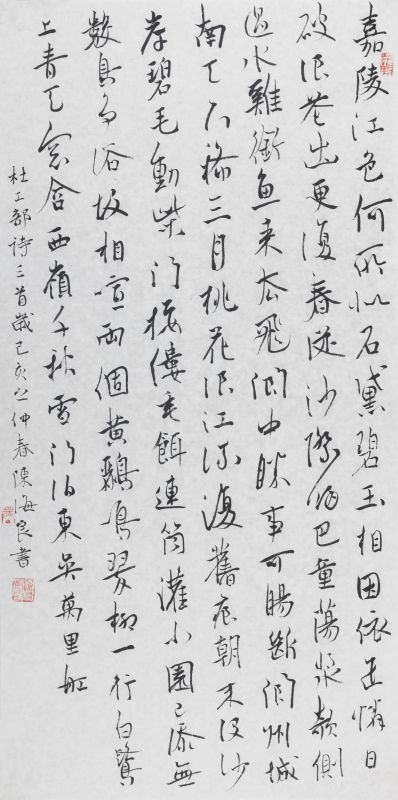 嘉陵江色何所似石黛碧玉相因依正憐日
破浪花出更復春從沙際歸巴童蕩槳欹側
過水雞銜魚來去飛閬中勝事可腸斷閬州城
南天下稀三月桃花浪江流復舊痕朝來沒沙
尾碧色動柴門接縷垂餌連筒灌小園已添無
數鳥爭浴故相喧兩個黃鸝鳴翠柳一行白鷺
上青天窗含西嶺千秋雪門泊東吳萬里船
杜工部詩三首歲己亥之仲春陳海良書